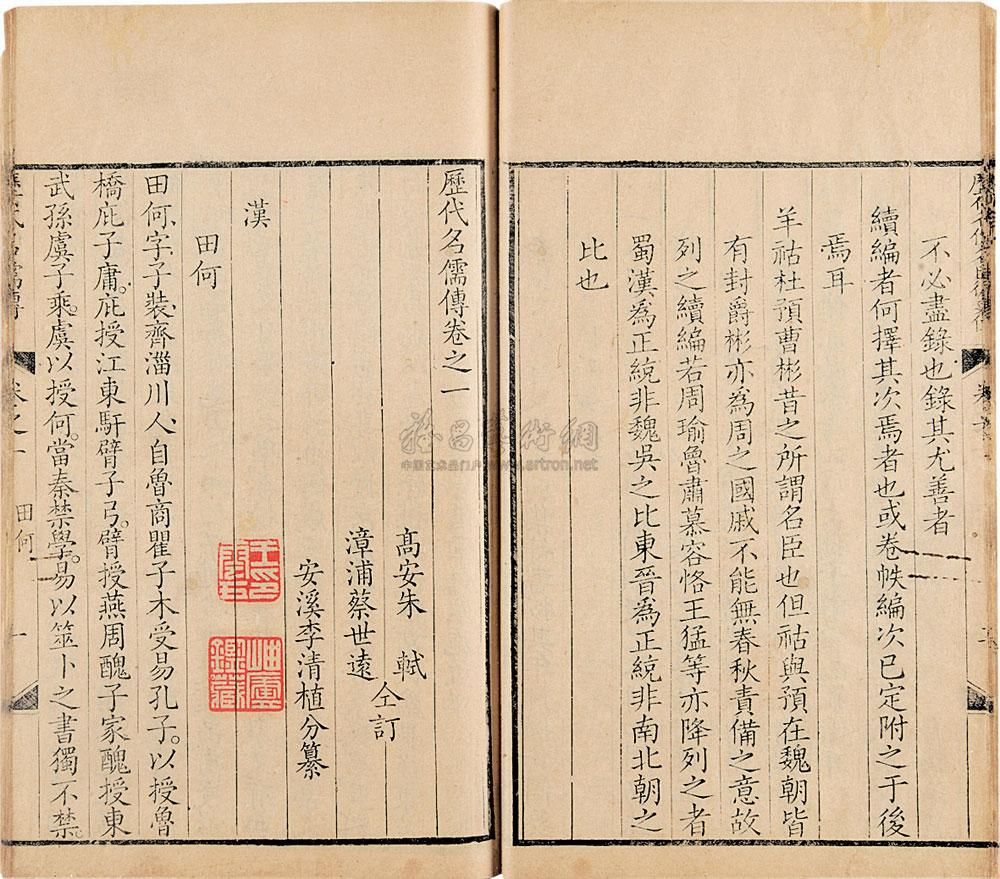 不必盡錄也錄其尤善者
續編者何擇其次焉者也或卷帙編次已定附之于後
焉耳
羊祜杜預曹彬昔之所謂名臣也但祜與預在魏朝皆
有封爵彬亦為周之國戚不能無春秋責備之意故
列之續編若周瑜魯肅慕容恪王猛等亦降列之者
蜀漢為正統非魏吳之比東晉為正統非南北朝之
比也
歷代名儒傳卷之一
高安朱軾
漳浦蔡世遠
仝訂
安溪李清植分纂
漢
田何
田何字子裝齊淄川人自魯商瞿子木受易孔子以授魯
橋庇子庸庇授江東馯臂子弓臂授燕周醜子家醜授東
武孫虞子乘虞以授何當秦禁學易以筮卜之書獨不禁
歷代名儒傳
卷之一
田何
一
www.artron.net